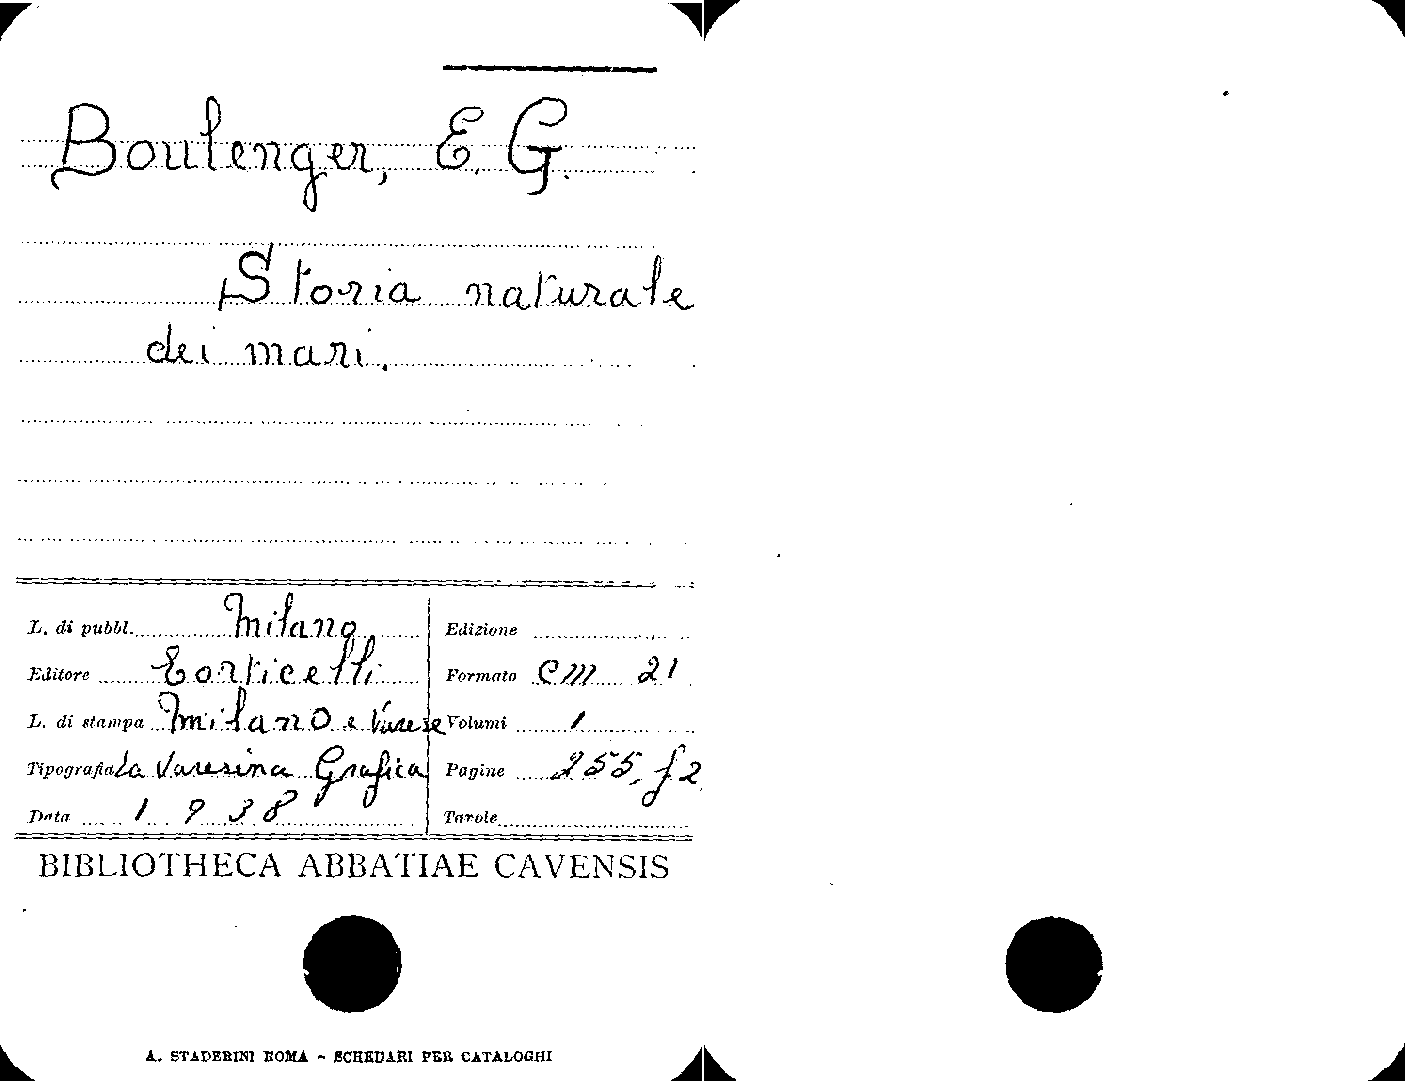 Boulenger, E. G.
Storia naturale
dei mari.
L. di pubbl. Milano
Editore Corticelli
L. di stampa Milano e Varese
Tipografia La Varesina Grafica
Data 1938
Edizione
Formato cm 21
Volumi 1
Pagine 255, f 2
Tavole
BIBLIOTHECA ABBATIAE CAVENSIS
A. STADERINI ROMA - SCHEDARI PER CATALOGHI